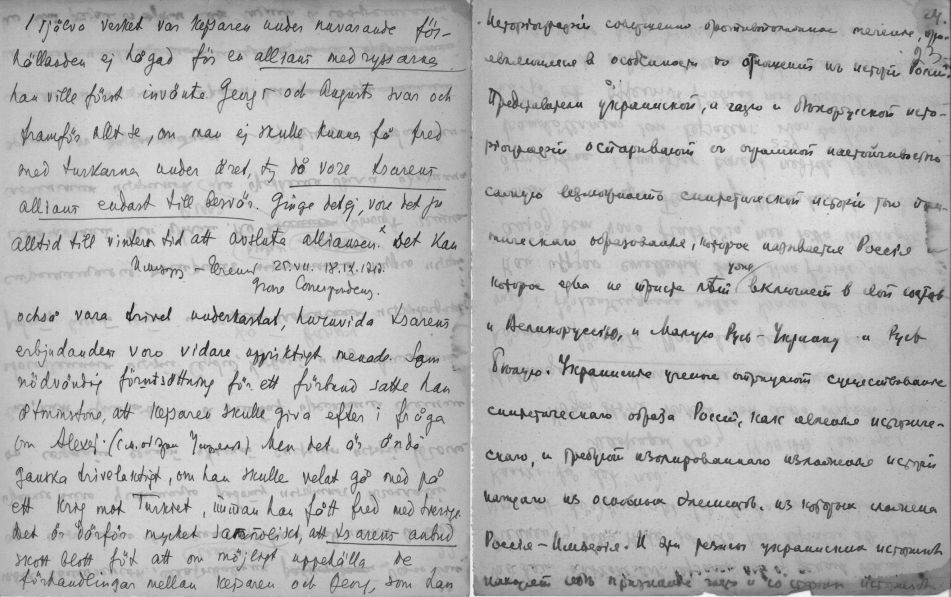 själva verket var kejsaren under nuvarande för-
hållanden ej hågad för en allians med ryssarna
han ville först invänta Georgs och Augusts svar och
framför allt se, om man ej skulle kunna få fred
med turkarna under året, ty då vore tsarens
allians endast till besvär. Ginge det ej, vore det ju
alltid till vintern tid att avsluta alliansen.x Det kan
25.VII. 18.IX.
också vara tvivel underkastat, huruvida tsarens
erbjudanden voro vidare uppriktigt menade. Som
nödvändig förutsättning för ett förbund satte han
åtminstone, att kejsaren skulle giva efter i fråga
om Alexej. Men det är ändå
ganska tvivelaktigt, om han skulle velat gå med på
ett krig mot Turkiet, innan han fått fred med Sverige.
Det är därför mycket sannolikt, att tsarens anbud
skett blott för att om möjligt uppehålla de
förhandlingar mellan kejsaren och Georg, som han
историографии совершенно противоположное течение,
23
явленное в особенности по отношению к истории России
Представители украинской, и белорусской исто-
риографии оспаривают с огромной настойчивостью
самую возможность синтетической истории того
образования, которое называется Россия и
которое едва не триста лет уже включает в свой состав
и Великоруссию, и Малую Русь - Украину и Русь
Белую. Украинские ученые отрицают существование
синтетического образа России, как явления историче-
ского, и требуют изолированного изложения истории
каждого из основных элементов, из которых сложена
Россия - Империя. И эти